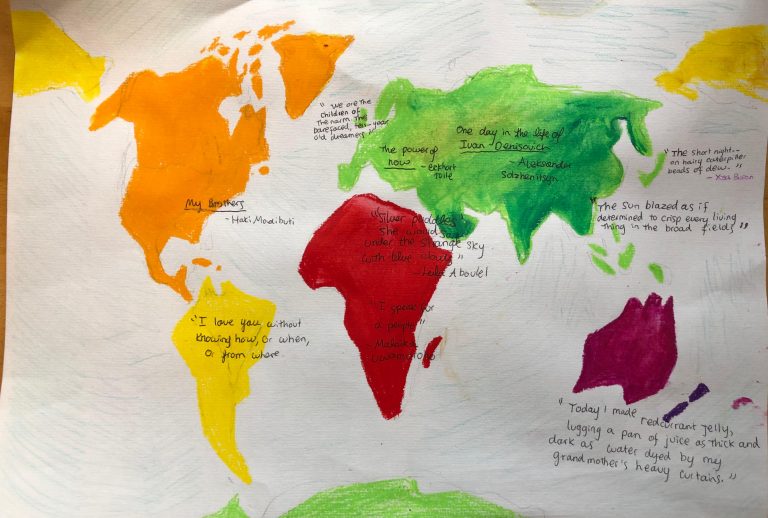 "We are the
children of
the norm. The
barefaced, ten-year
old dreamers"
The power of
now - Eckhart
Tolle
One day in the life of
Ivan Denisovich
- Aleksandr
Solzhenitsyn
"The short night--
on hairy caterpillar
beads of dew."
- Buson
"The Sun blazed as if
determined to crisp every living
thing in the broad fields"
My Brothers
- Haki Madibuti
"Silver puddles
she would say
under the strange sky
with blue clouds"
- Leila Aboulel
"I speak for
a people"
"I love you without
knowing how, or when,
or from where.
"Today I made redcurrant jelly,
lugging a pan of juice as thick and
dark as water dyed by my
grandmother's heavy curtains."